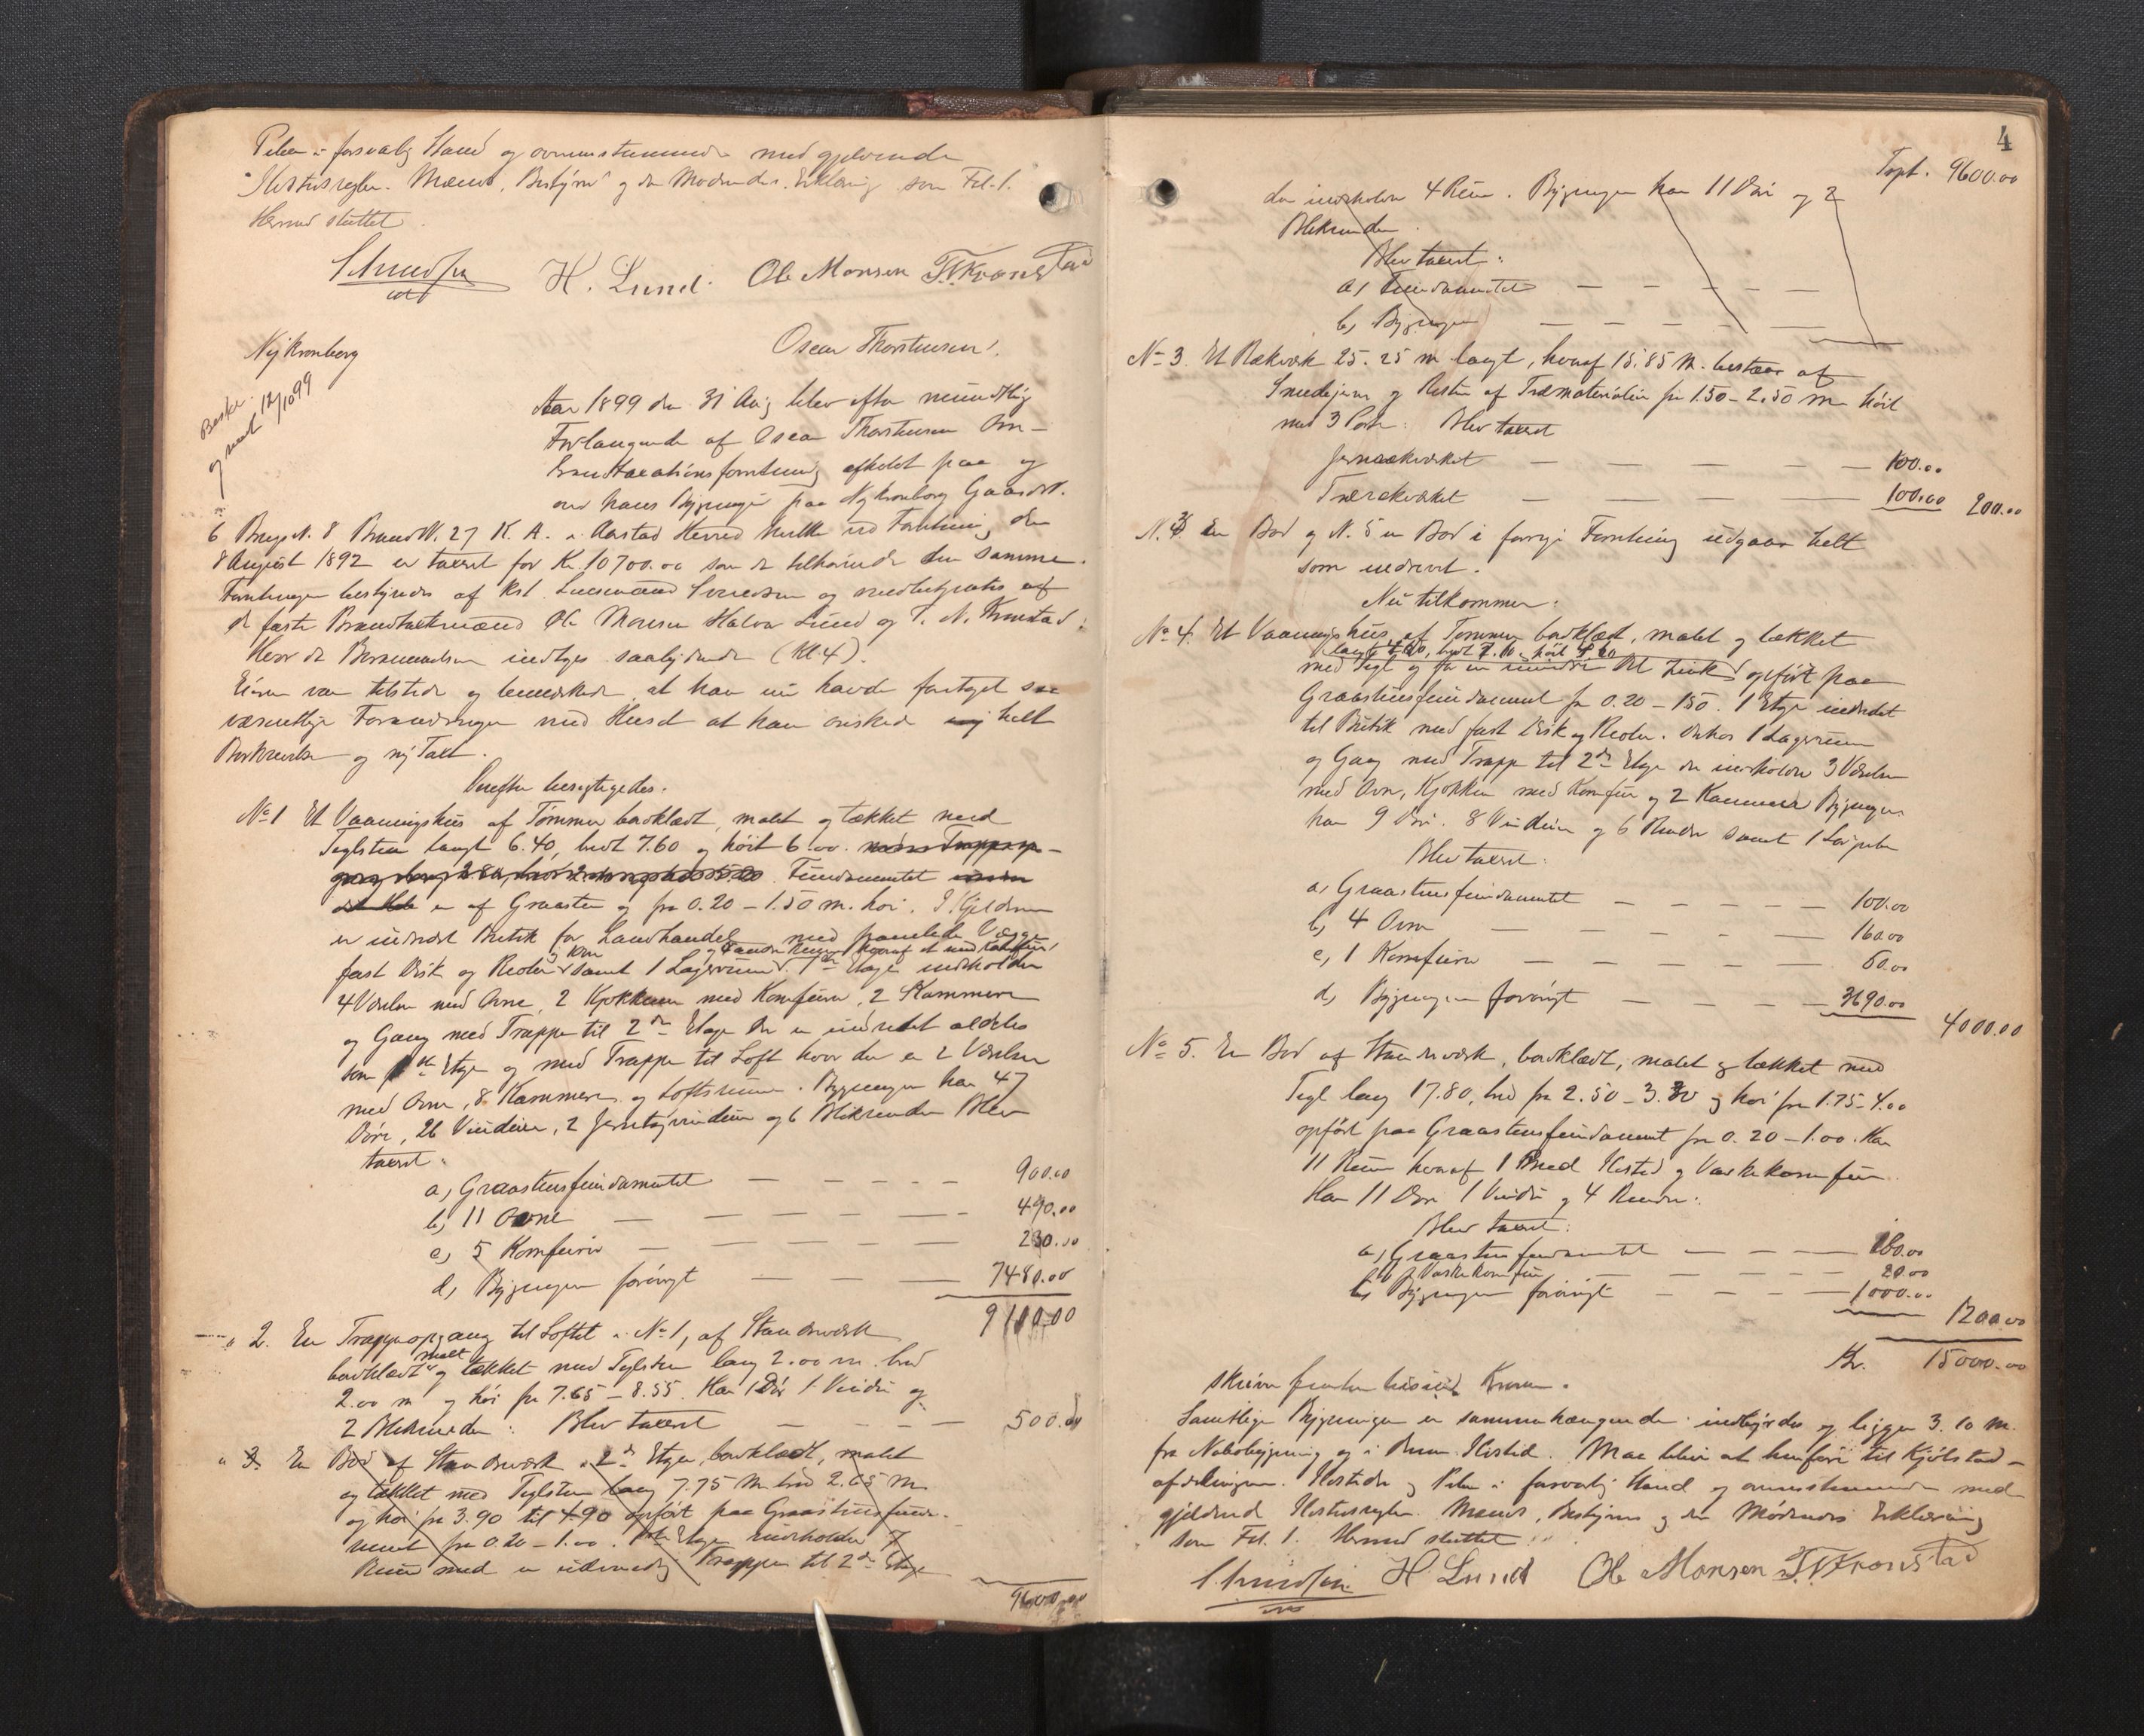 Piber i forsvarlig Stand og overensstemmende med gjeldende
Ildstedsregler. Mænds, Bestyrer og de Mødendes Erklæring som Fol. 1.
Hermed sluttet.
H. Lund. Ole Monsen T. N. Kronstad
Nykronborg
Beskr.
og medt 12/10 99
Oscar Thorstensen.
Aar 1899 den 31 Aug blev efter mundtlig
Forlangende af Oscar Thorstensen Om-
brandtaxationsforretning afholdt paa og
over hans Bygninger paa Nykronborg Gaards N.
6 Brugs N. 8 Brand N. 27 K. A. i Aarstad Herred hvilke ved Forretning den
8 August 1892 er taxeret for Kr. 10700.00 som de tilhørende den samme.
Forretningen bestyredes af Kst. Lensmand og medbetjentes af
de faste Brandtaxtmænd Ole Monsen Halvor Lund og T. N. Kronstad.
Hvor da Beramelsen indtoges saalydende (Kl. 4).
Eieren var tilstede og bemærkede at han nu havde foretaget saa
væsentlige Forandringer med Huset at han ønskede helt
Beskrivelse og ny Taxt.
Derefter besigtigedes:
No 1 Et Vaaningshus af Tømmer bordklædt, malet og tækket med
Teglsten langt 6.40, bredt 7.60 og høit 6.00.
Fundamentet
er af Graasten og fra 0.20 – 1.50 m. høi. I Kjelderen
er indredet Butik for Landhandel med panelede Vægge
fast Disk og Reoler samt 1 Lagerrum. 1ste Etage indeholder
4 Værelser med Ovne, 2 Kjøkkener med Komfurer, 2 Kammere
og Gang med Trappe til 2den Etage der er indredet aldeles
som 1ste Etage og med Trappe til Loft hvor der er 2 Værelser
med Ovne, 8 Kammere og Loftsrum. Bygningen har 47
Døre, 26 Vinduer, 2 Jerntagvinduer og 6 Blikrender Blev
taxeret:
a, Graastensfundamentet — — — — 900.00
b, 11 Ovne — — — — 490.00
c, 5 Komfurer — — — — 230.00
d, Bygningen forøvrigt — — — 7480.00
9100.00
" 2. En Trappeopgang til Loftet i No 1, af Standerværk
malt
bordklædt og tækket med Teglsten lang 2.00 m. bred
2.00 m og høi fra 7.65 – 8.55. Har 1 Dør 1 Vindu og
2 Blikrender: Blev taxeret — — — 500.00
" 3. En Bod af Standerværk i 2de Etager, bordklædt, malet
og tækket med Teglsten lang 7.75 m bred 2.65 m
og høi fra 3.90 til 4.90 opført paa Graastensfunda-
ment fra 0.20 – 1.00. 1ste Etage indeholder 7
Rum med en udvendig Trappe til 2den Etage
9600.00
4
Tspt. 9600.00
der indeholder 4 Rum. Bygningen har 11 Døre og 2
Blikrender.
Blev taxeret:
a, Fundamentet — — — — —
b, Bygningen — — — — —
No 3. Et Rækværk 25.25 m langt, hvoraf 15.85 m. bestaar af
Smedejern og Resten af Træmaterialier fra 1.50 – 2.50 m høit
med 3 Porte: Blev taxeret
Jernrækværket — — — — — 100.00
Trærækværket — — — — — 100.00 200.00
N. 3 En Bod og N. 5 en Bod i forrige Forretning udgaar helt
som nedrevet.
Nu tilkommer:
No 4. Et Vaaningshus af Tømmer bordklædt, malet og tækket
med Tegl og for en mindre Del Zink opført paa
Graastensfundament fra 0.20 – 1.50. 1 Etage indredet
til Butik med fast Disk og Reoler. Derhos 1 Lagerrum
og Gang med Trappe til 2den Etage der indeholder 3 Værelser
med Ovn, Kjøkken med Komfur og 2 Kammere Bygningen
har 9 Døre. 8 Vinduer og 6 Render samt 1
Blev taxeret:
a, Graastensfundamentet — — — — — 100.00
b, 4 Ovne — — — — — 160.00
c, 1 Komfure — — — — — 50.00
d, Bygningen forøvrigt — — — — 3690.00
4000.00
No 5. En Bod af Standerværk, bordklædt, malet og tækket med
Tegl lang 17.80, bred fra 2.50 – 3.30 og høi fra 1.75 – 4.00
opført paa Graastensfundament fra 0.20 – 1.00. Har
11 Rum hvoraf 1 med Ildsted og Vaskekomfur
Har 11 Døre 1 Vindu og 4 Render.
Blev taxeret:
a, Graastensfundamentet — — — 180.00
b, 1 Vaskekomfur — — — — 20.00
c, Bygningen forøvrigt — — — — 1000.00
1200.00
Kr. 15000.00
skriver femten tusind Kroner.
Samtlige Bygninger er sammenhængende indbyrdes og ligger 3.10 m.
fra Nabobygning og i Rum Ildsted. Maa blive at henføre til Kjøbstad-
afdelingen. Ildsteder og Piber i forsvarlig Stand og overensstemmende med
gjeldende Ildstedsregler. Mænds, Bestyrers og de Mødendes Erklæring
som Fol. 1. Hermed sluttet.
H Lund Ole Monsen T. N. Kronstad